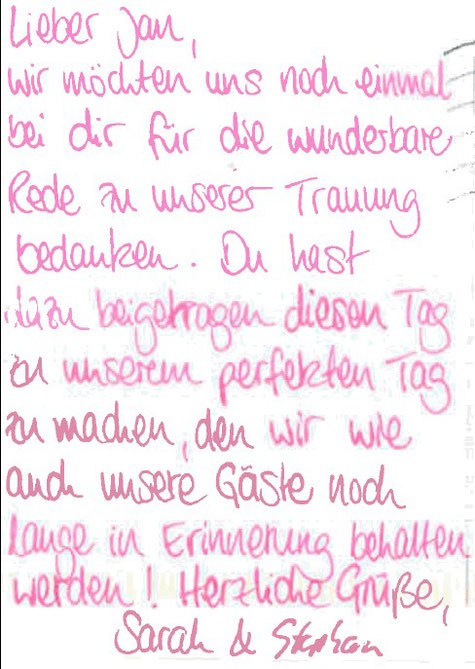 Lieber Jan,
wir möchten uns noch einmal
bei dir für die wunderbare
Rede zu unserer Trauung
bedanken. Du hast
dazu beigetragen diesen Tag
zu unserem perfekten Tag
zu machen, den wir wie
auch unsere Gäste noch
lange in Erinnerung behalten
werden! Herzliche Grüße,
Sarah & Stephan